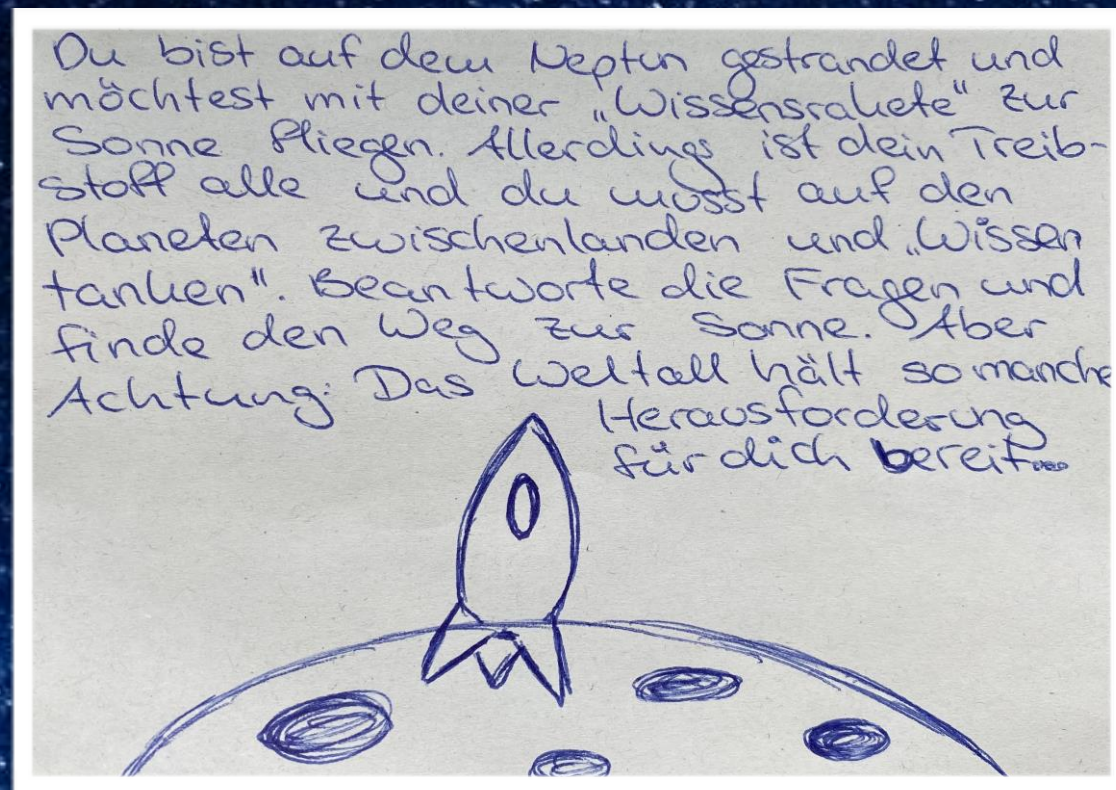 Du bist auf dem Neptun gestrandet und
möchtest mit deiner „Wissensrakete" zur
Sonne fliegen. Allerdings ist dein Treib-
stoff alle und du musst auf den
Planeten zwischenlanden und „Wissen
tanken". Beantworte die Fragen und
finde den Weg zur Sonne. Aber
Achtung: Das Weltall hält so manche
Herausforderung
für dich bereit...